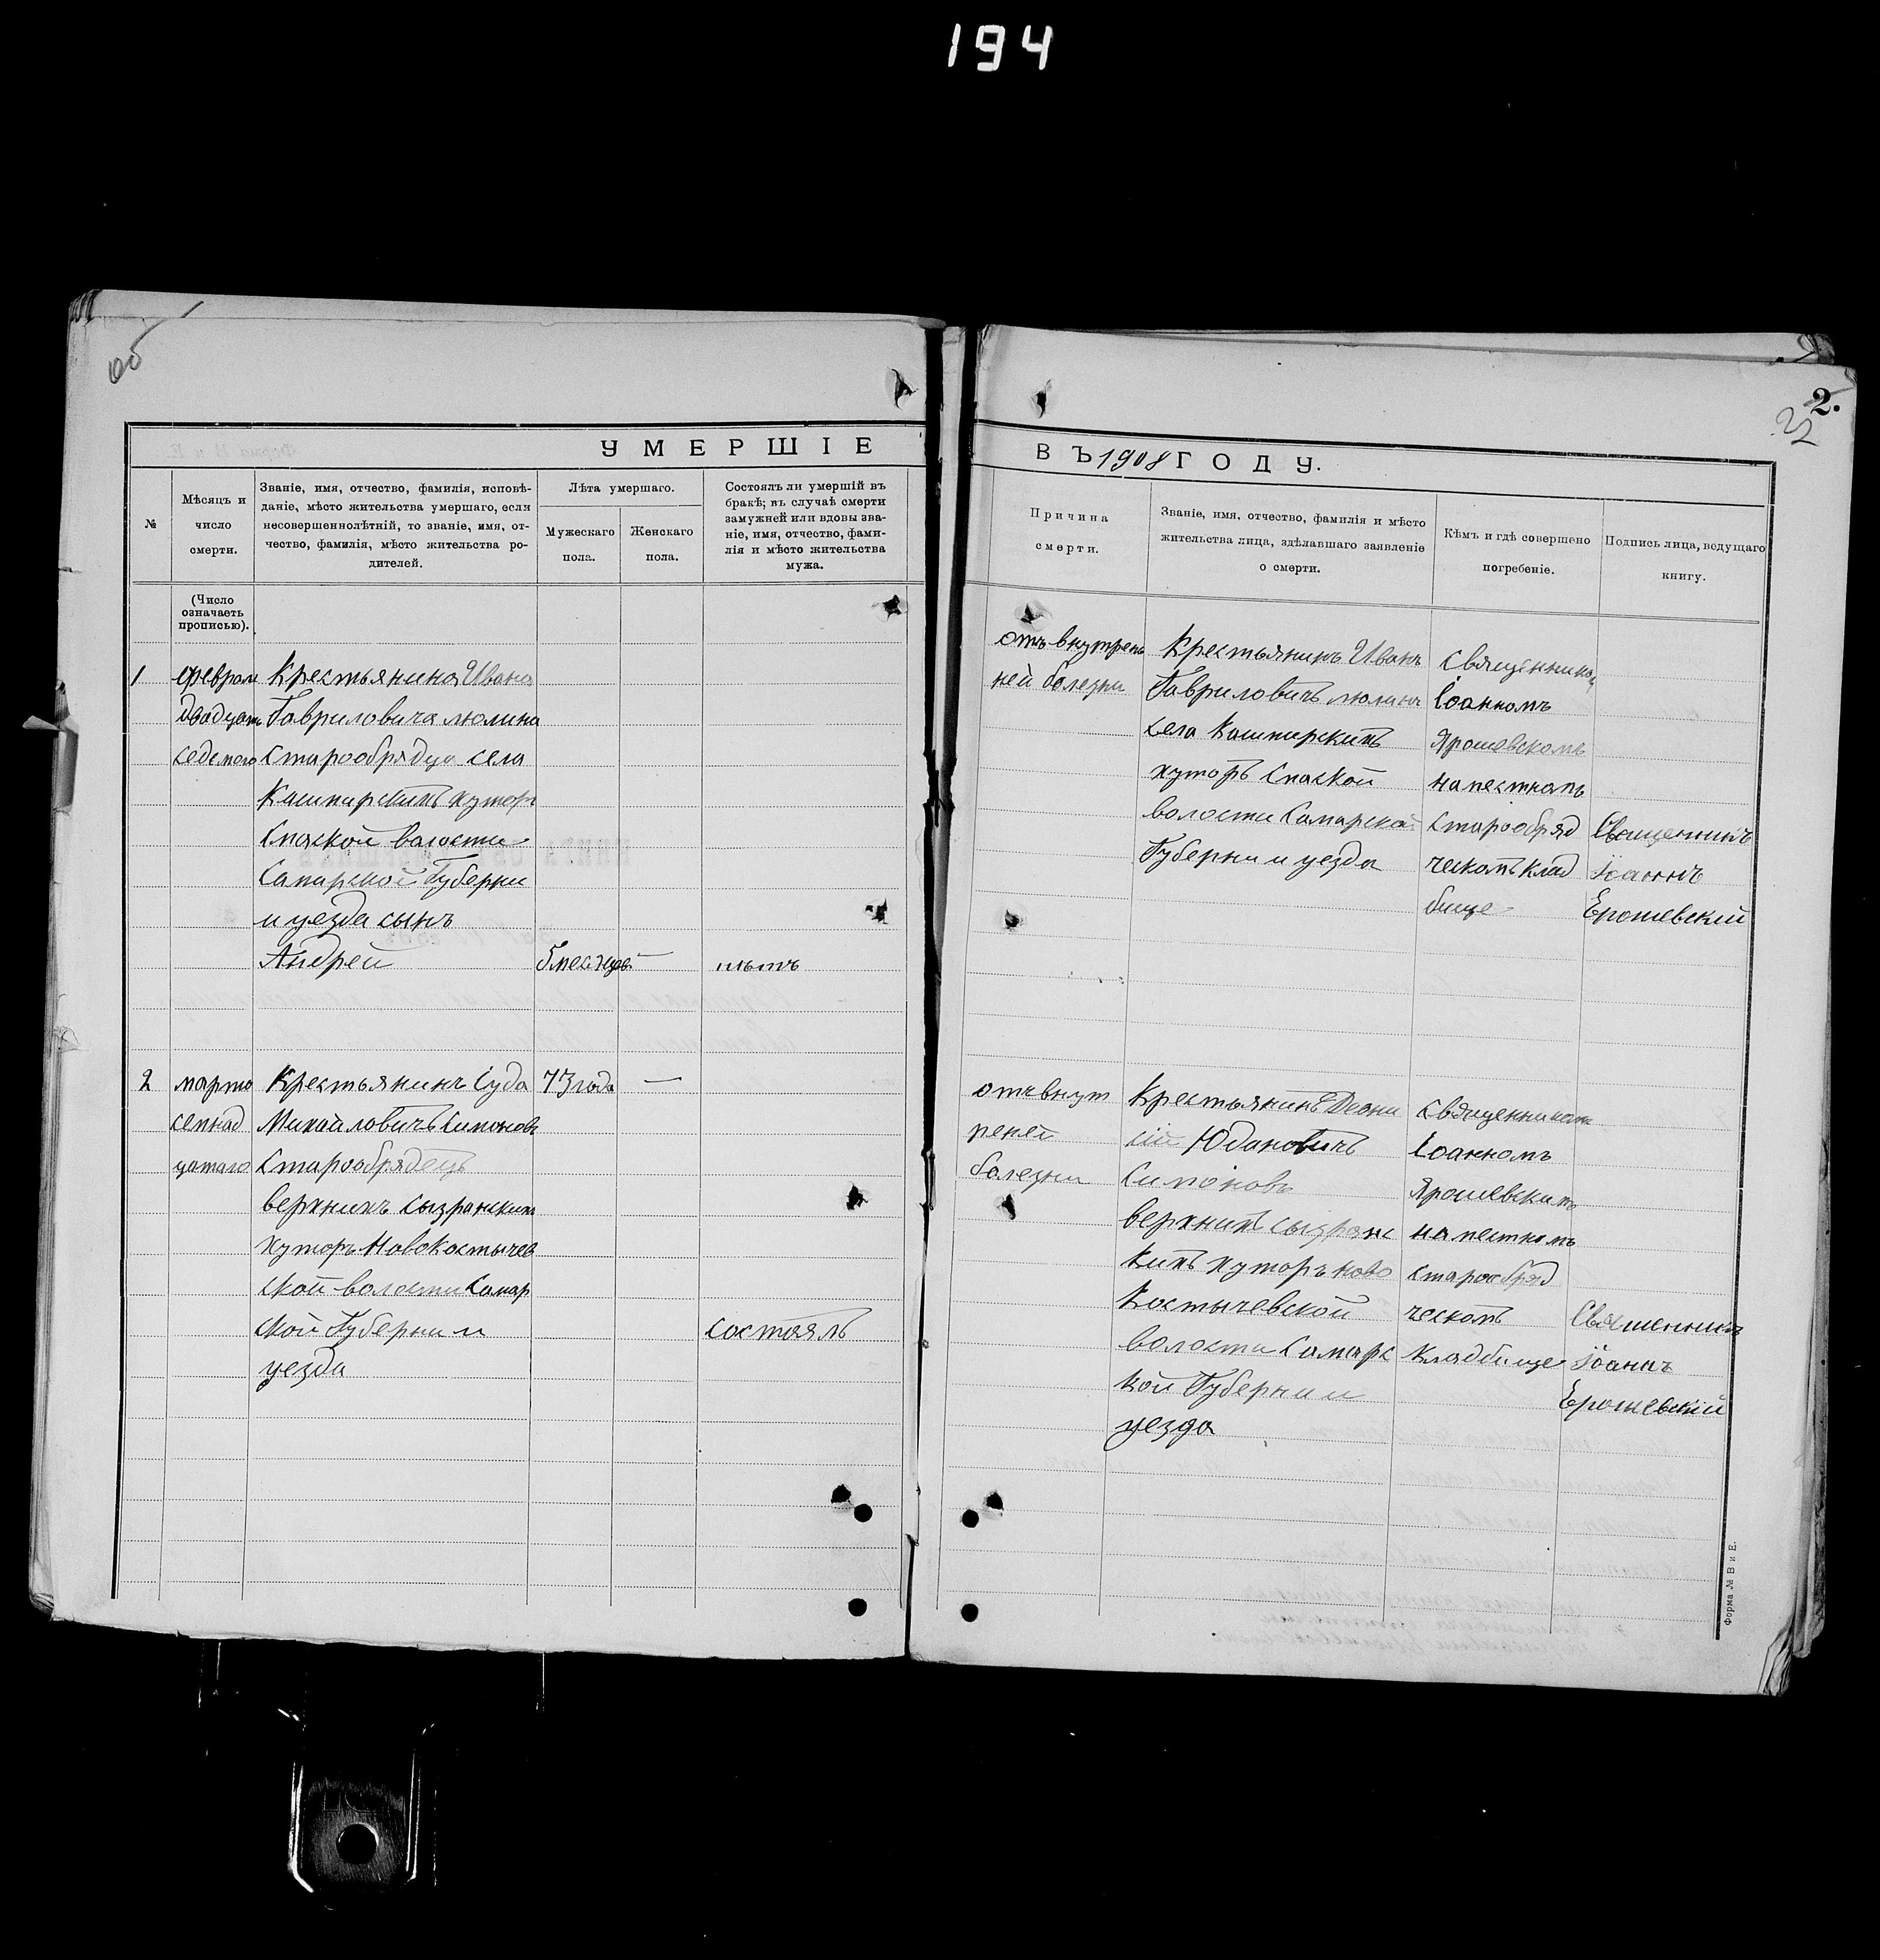 194
2.
УМЕРШІЕ
ВЪ 1908 ГОДУ.
№
Мѣсяцъ и
число
смерти.
Званіе, имя, отчество, фамилія, исповѣ-
даніе, мѣсто жительства умершаго, если
несовершеннолѣтній, то званіе, имя, от-
чество, фамилія, мѣсто жительства ро-
дителей.
Лѣта умершаго.
Мужескаго
пола.
Женскаго
пола.
Состоялъ ли умершій въ
бракѣ; въ случаѣ смерти
замужней или вдовы зва-
ніе, имя, отчество, фами-
лія и мѣсто жительства
мужа.
Причина
смерти.
Званіе, имя, отчество, фамилія и мѣсто
жительства лица, здѣлавшаго заявленіе
о смерти.
Кѣмъ и гдѣ совершено
погребеніе.
Подпись лица, ведущаго
книгу.
(Число
означаетъ
прописью).
1
феврал
двадцать
седмого
Крестьянина Ивана
Гавриловича люлина
Старообрядца села
Кашпирскихъ хутор
Спаской валости
Самарской Губерни
и уезда сынъ
Андрей
5 месяцев
—
нѣтъ
отъ внутрен
ней болезни
Крестьянинъ Иванъ
Гавриловичъ люлинъ
села Кашпирскихъ
хуторъ Спаской
волости Самарской
Губерни и уезда
священником
Іоанномъ
Ярошевскомъ
на местномъ
старообряд
ческомъ клад
бище
Священникъ
Іоаннъ
Ерошевский
2
марта
семнад
цатаго
Крестьянинъ Іуда
Михайловичъ Симонов
Старообрядецъ
верхнихъ сызранских
хуторъ Новокостычев
ской волости Самар
ской Губерни и
уезда
73 года
—
состоялъ
отъ внут
реней
болезни
Крестьянинъ Деони
сій Юдановичъ
Симоновъ
верхнихъ сызранс
кихъ хуторъ ново
Костычевской
волости Самарс
кой Губерни и
уезда
священником
Іоанномъ
Ярошевскимъ
на местномъ
старообряд
ческомъ
кладбище
Священникъ
Іоанъ
Ерошевский
Форма № В и Е.